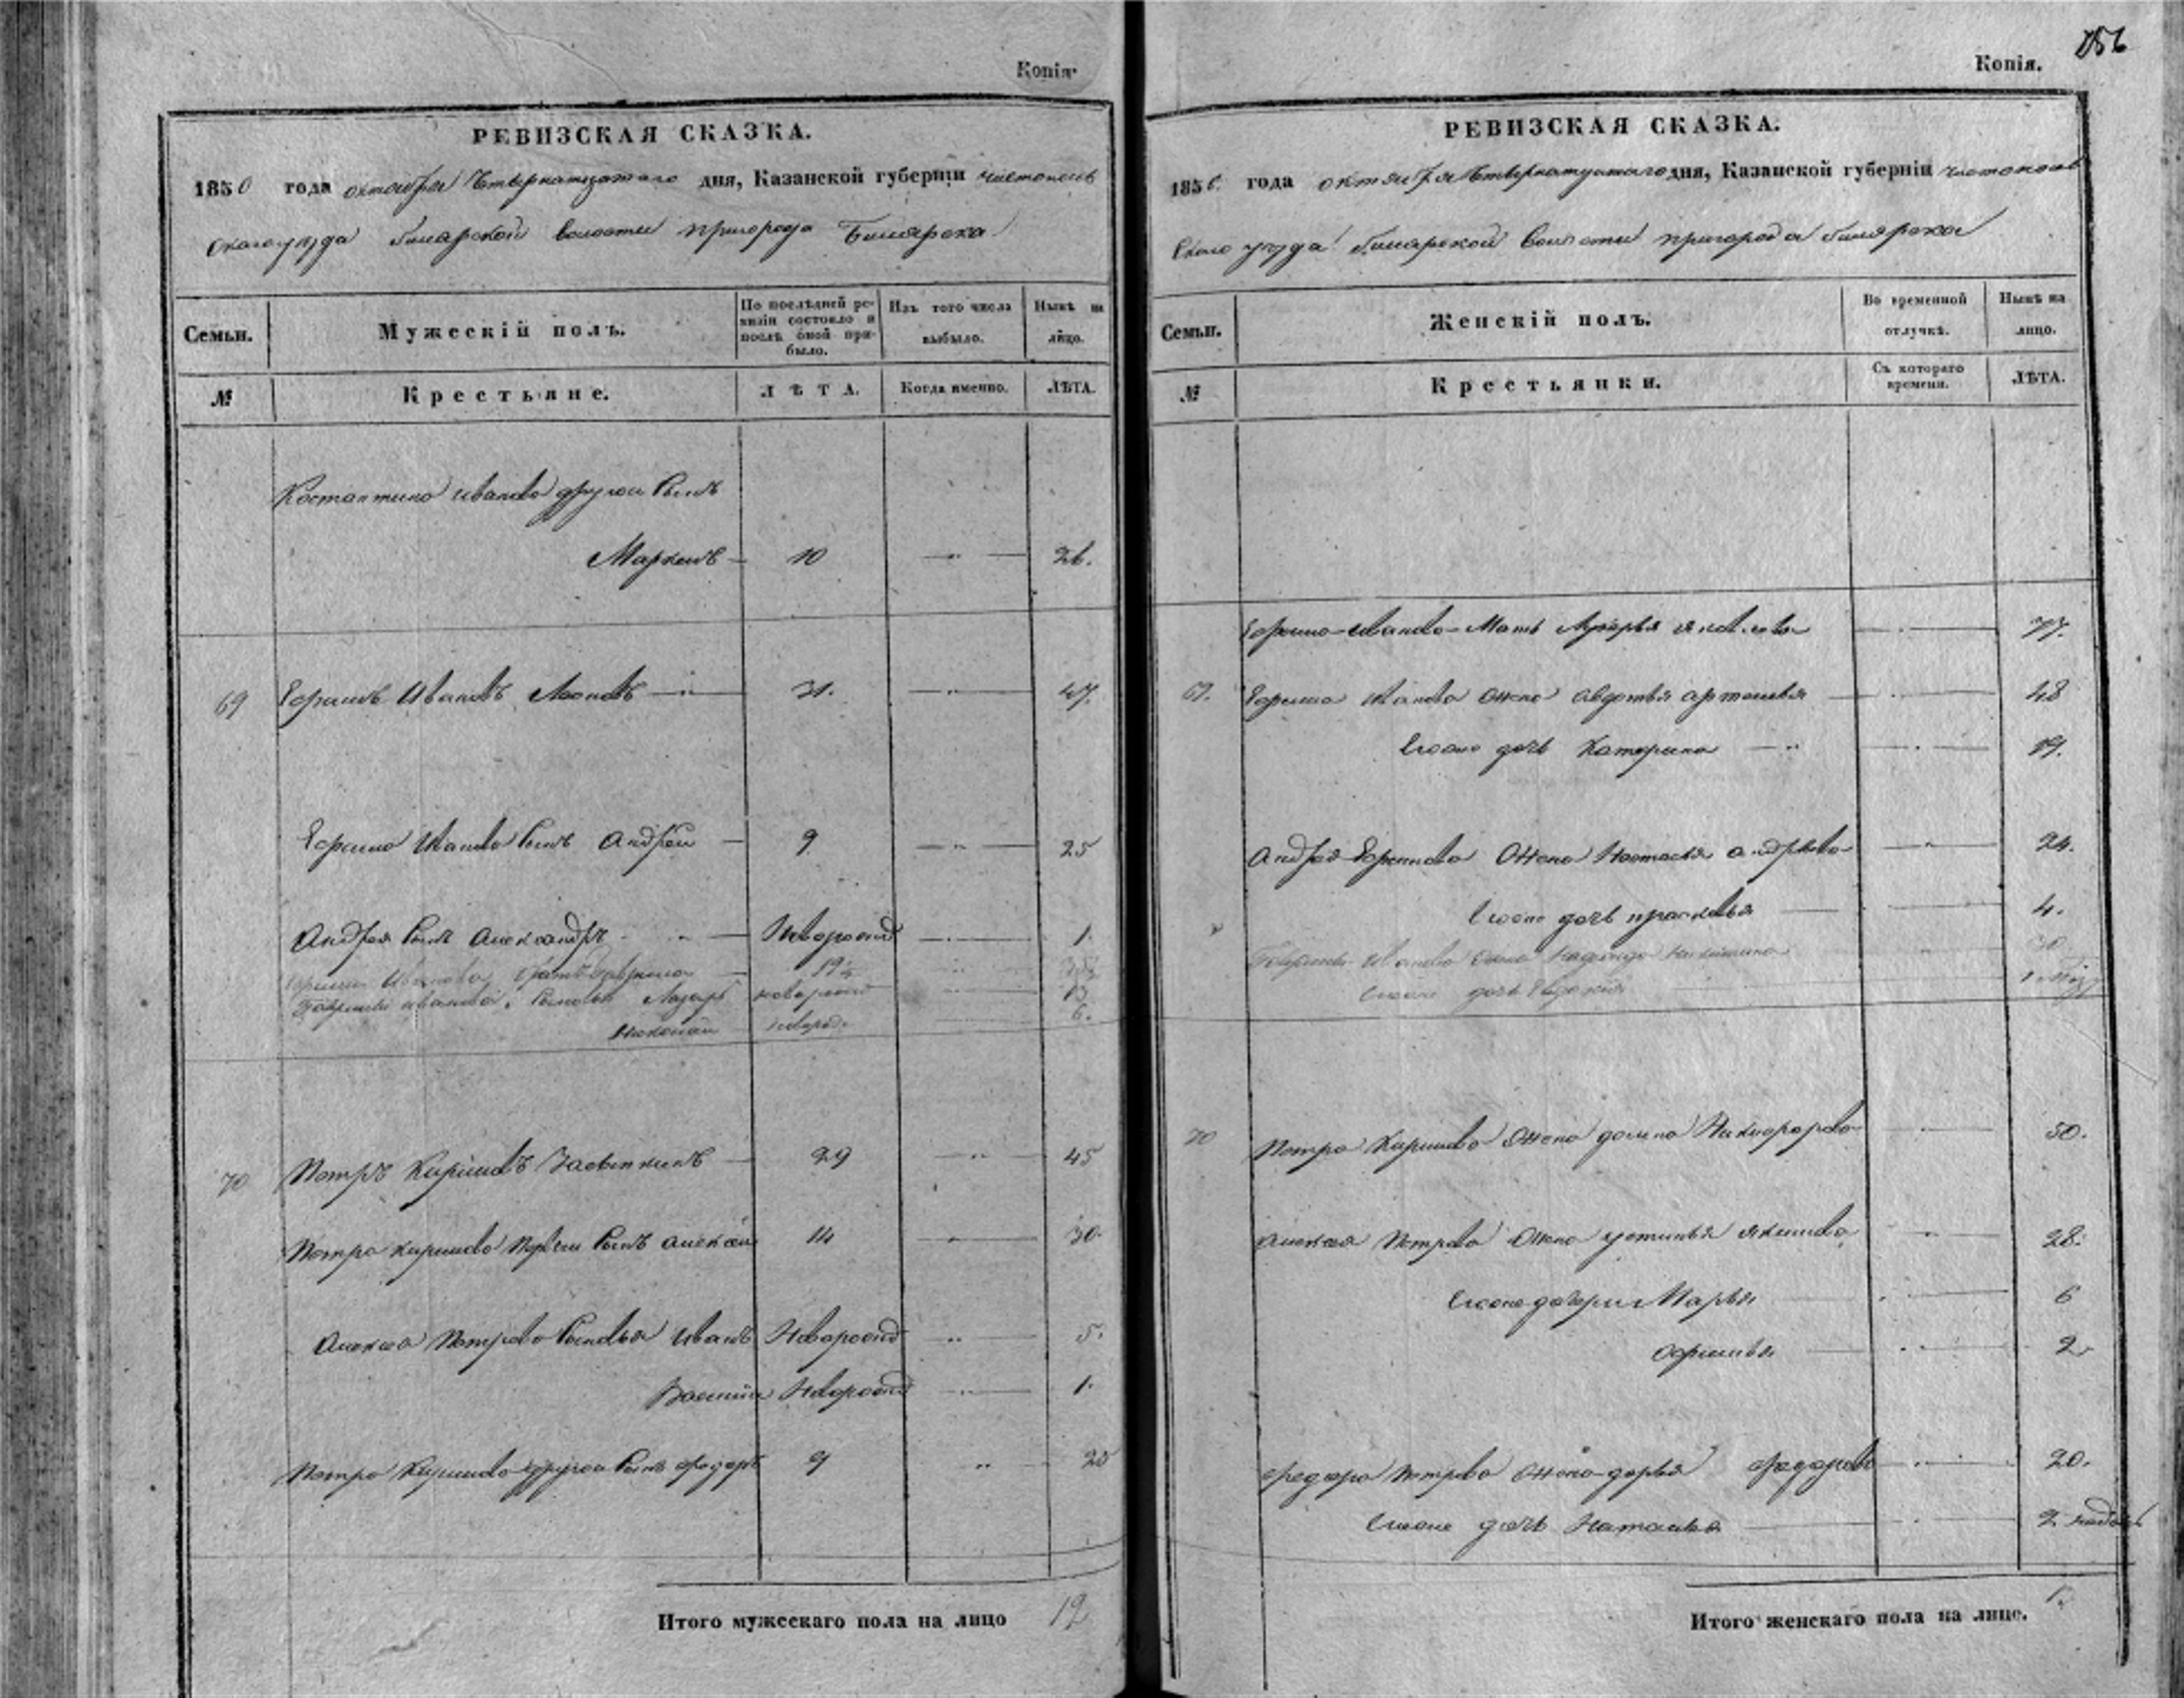 Копія.
РЕВИЗСКАЯ СКАЗКА.
1850 года октября четвернатцатаго дня, Казанской губерніи чистополь
скаго уезда билярской волости пригорода Билярска
Семьи.
Мужескій полъ.
По послѣдней ре-
визіи состояло и
послѣ оной при-
было.
Изъ того числа
выбыло.
Нынѣ на
лицо.
№
Крестьяне.
ЛѢТА.
Когда именно.
ЛѢТА.
Костантина иванова другой сынъ
10 26.
69 Ефимъ Ивановъ 31. 47.
Ефима Иванова сынъ Андрей 9. 25
Андрея сынъ Александръ Новорожд 1.
Ефима Иванова братъ Гаврила 19½
Гаврилы иванова сыновья Лазарь новорожд 13
Николай новорожд. 6.
70 Петръ Кириловъ 29 45
Петра кирилова первый сынъ алексей 14 30.
Алексея Петрова сыновья Иванъ Новорожд 5.
Василий Новорожд 1.
Петра Кирилова другой сынъ федоръ 9 25
Итого мужескаго пола на лицо 12
156
Копія.
РЕВИЗСКАЯ СКАЗКА.
1850. года октября четвернатцатаго дня, Казанской губерніи чистополь
скаго уезда билярской волости пригорода билярска
Семьи.
Женскій полъ.
Во временной
отлучкѣ.
Нынѣ на
лицо.
№
Крестьянки.
Съ котораго
времени.
ЛѢТА.
Ефима Иванова Мать Лукерья яковлева 77.
69. Ефима Иванова жена авдотья артемьева 48
Ево же дочь Катерина 19.
Андрея Ефимова жена Настасья андреева 24.
Ево же дочь прасковья 4.
Гаврилы Иванова жена Надежда никитина 30
Ево же дочь Евдокия
70 Петра Кирилова жена домна Никифорова 50.
алексея Петрова жена устинья якимова 28.
Ево же дочери Марья 6
афимья 2
федора петрова жена дарья федорова 20.
Ево же дочь Наталья 2 недель
Итого женскаго пола на лице.